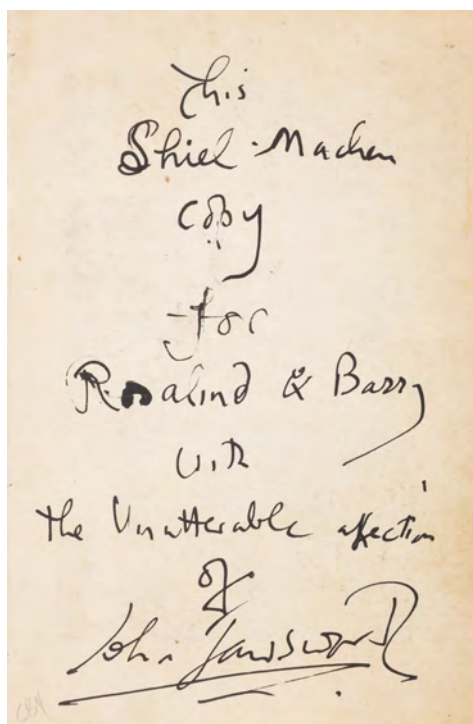 This
Shiel-Machen
copy
for
Rosalind & Barry
with
the Unutterable affection
of
John Gawsworth